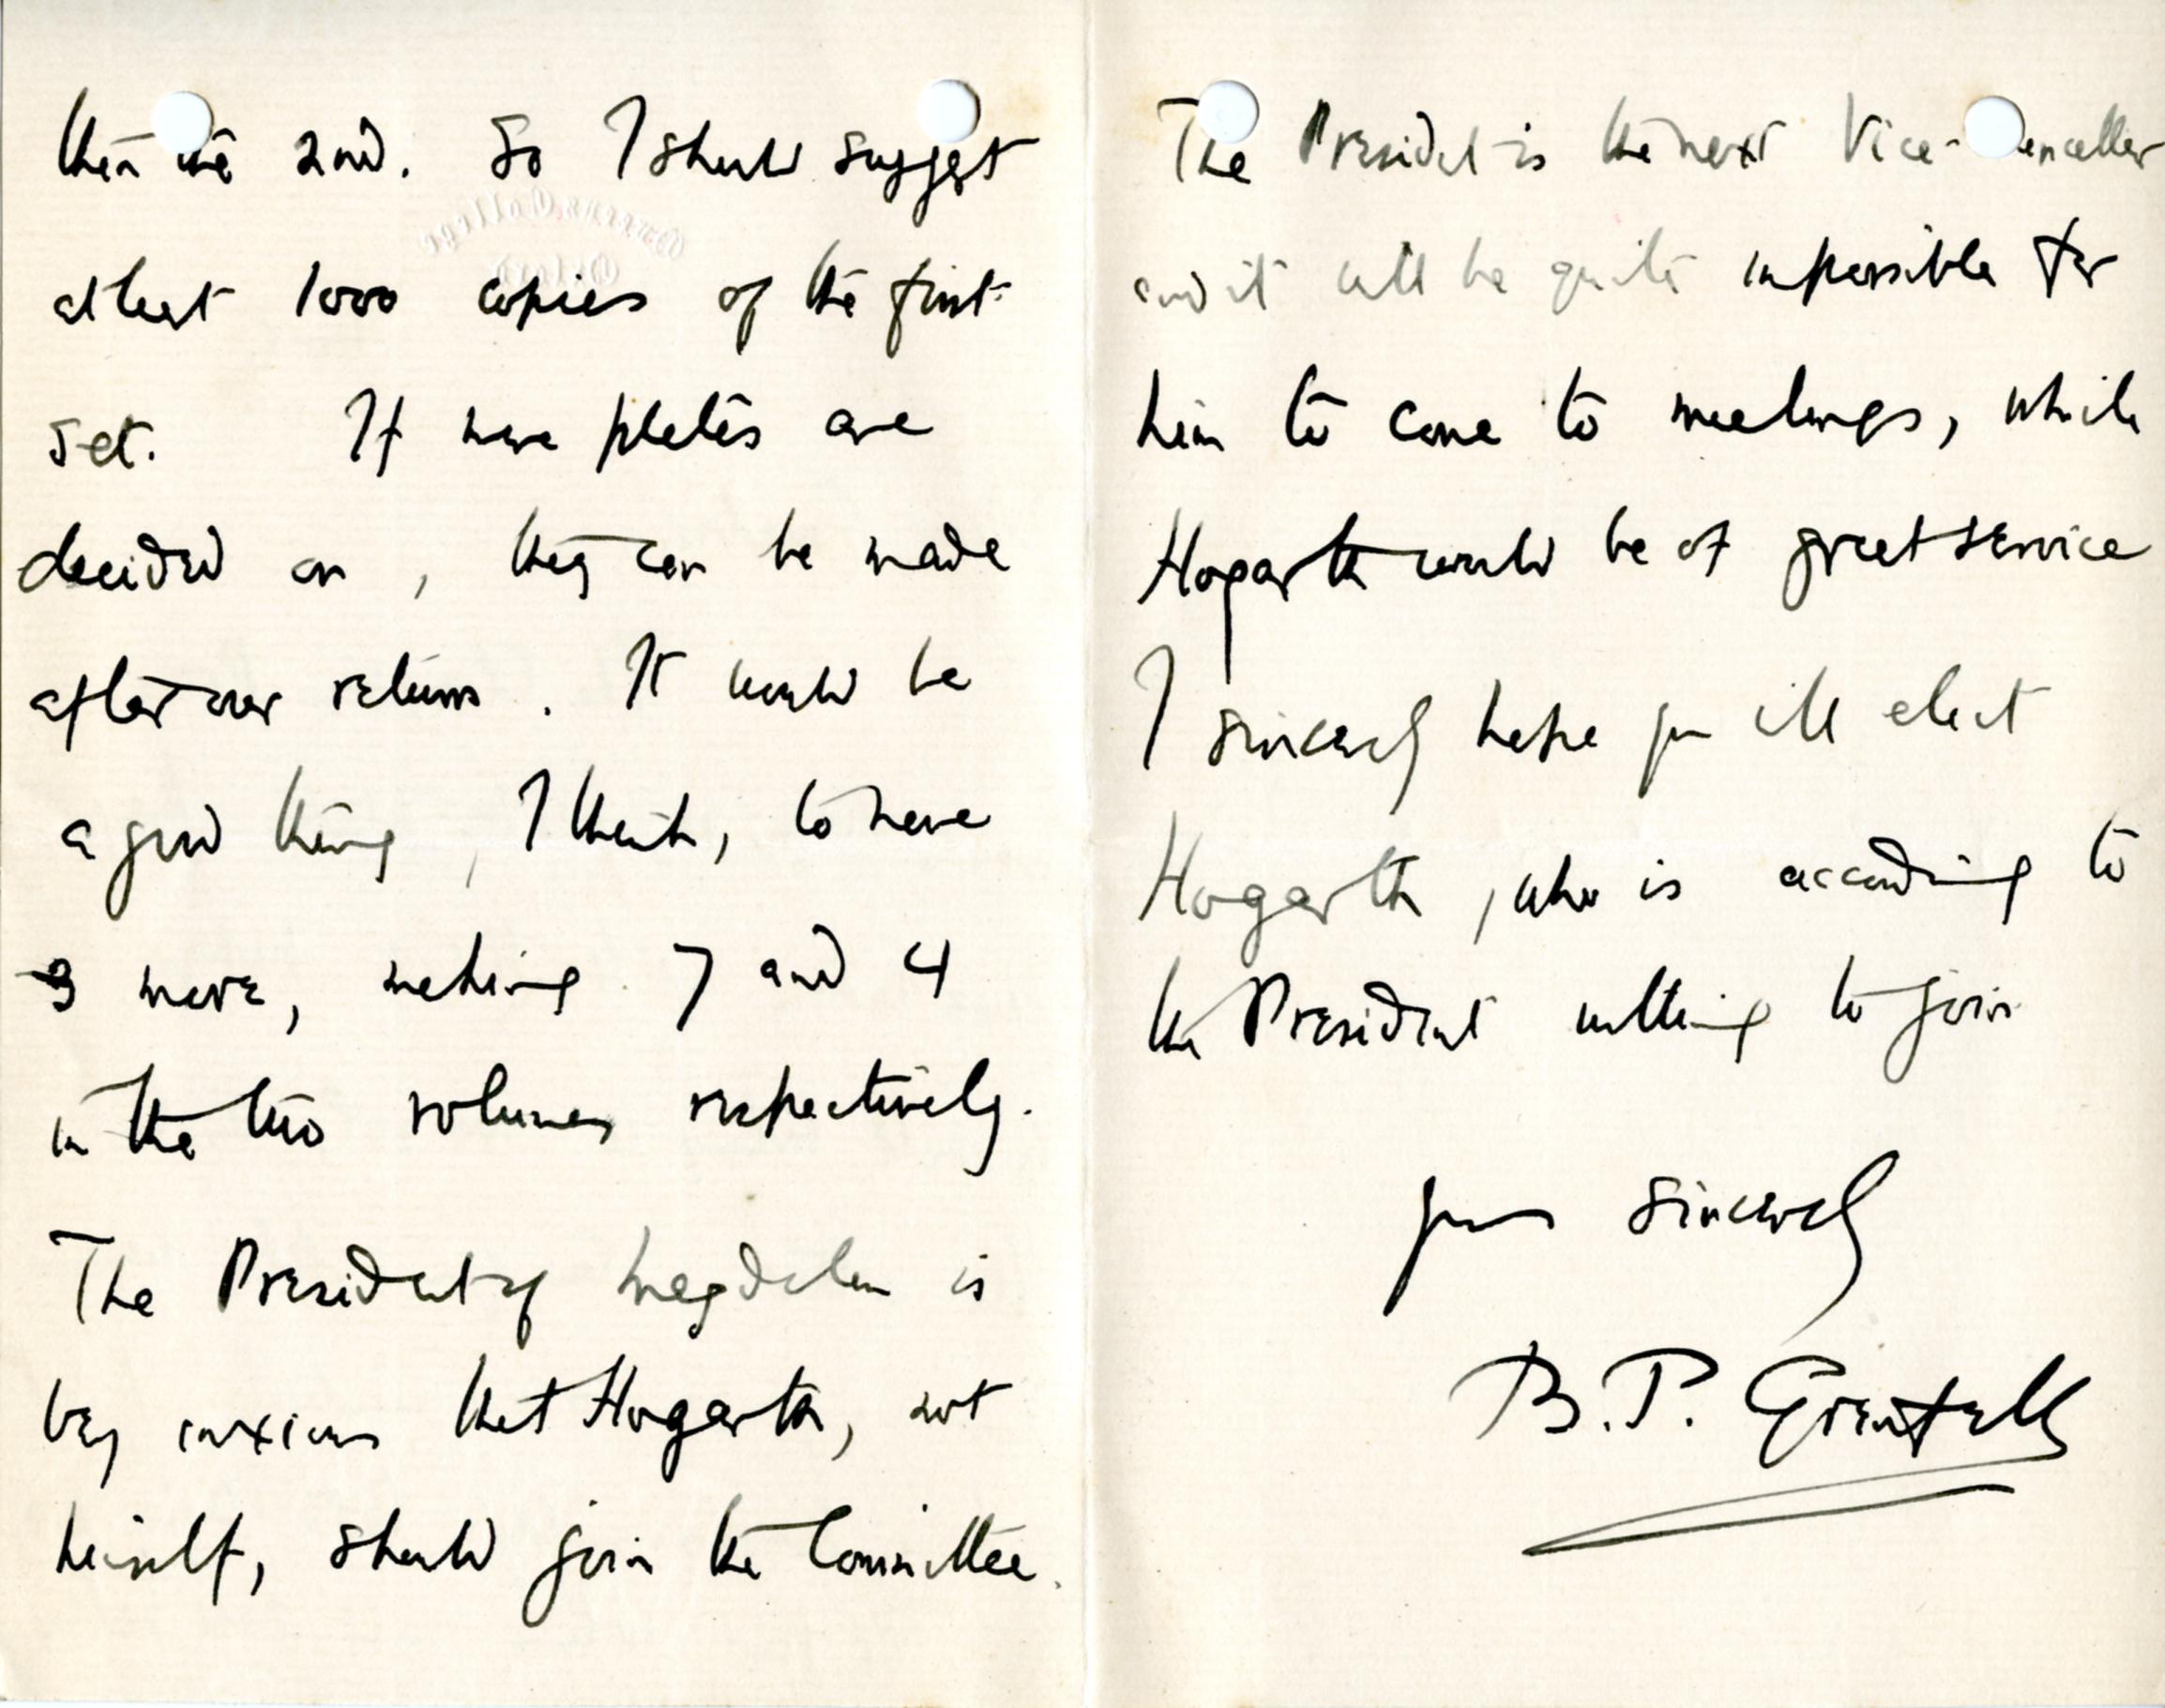 than the 2nd. So I should suggest
at least 1000 copies of the first
set. If more plates are
decided on, they can be made
after our return. It would be
a good thing, I think, to have
3 more, making 7 and 4
in the two volumes respectively.
The President of Magdalen is
very anxious that Hogarth, not
himself, should join the Committee.
The President is the next Vice-Chancellor
and it will be quite impossible for
him to come to meetings, while
Hogarth would be of great service
I sincerely hope you will elect
Hogarth, who is according to
the President willing to join
yours sincerely
B. P. Grenfell
Queen's College
Oxford